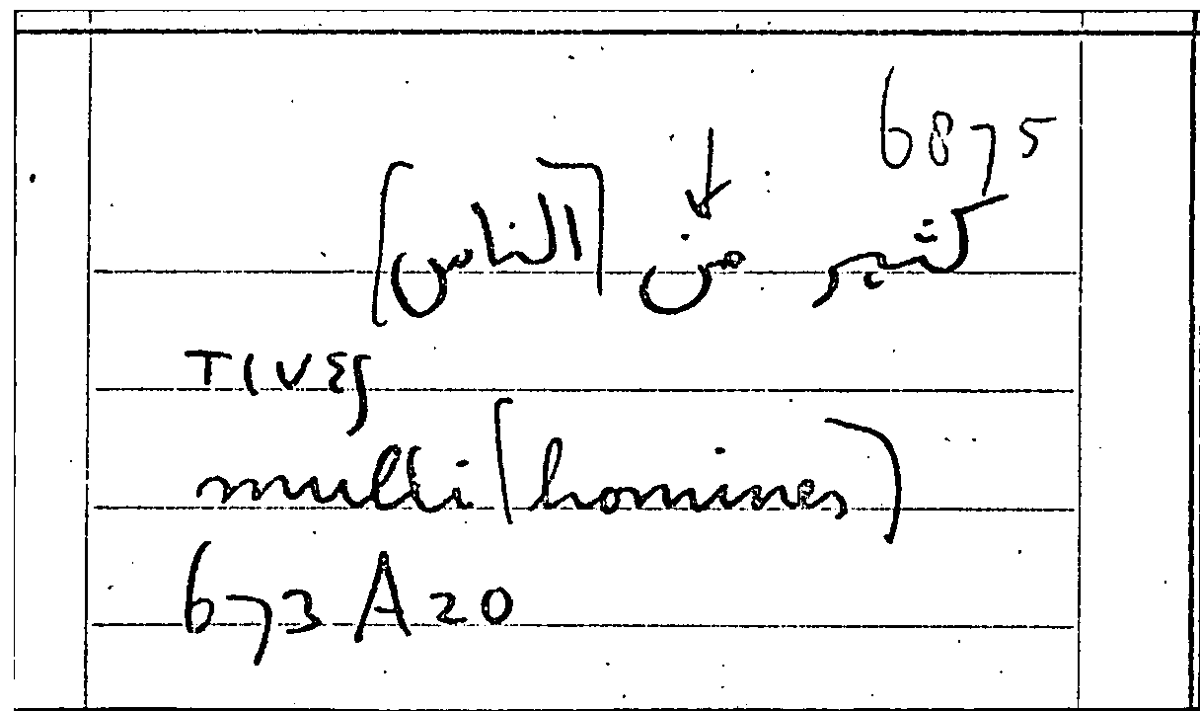 6875
↓
كثير من [الناس]
τινες
multi (homines)
673 A 20